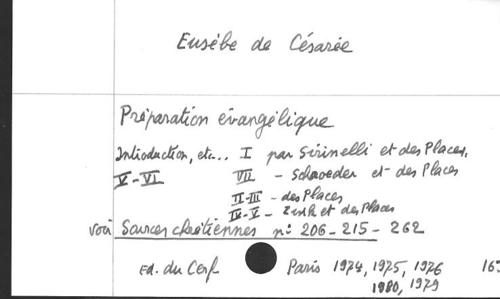 Eusèbe de Césarée
Préparation évangélique
Introduction, etc... I par Sirinelli et des Places,
V-VI VII - Schroeder et des Places
II-III - des Places
IV-V - Zink et des Places
voir Sources chrétiennes nº: 206-215-262
Ed. du Cerf Paris 1974, 1975, 1976
1980, 1979